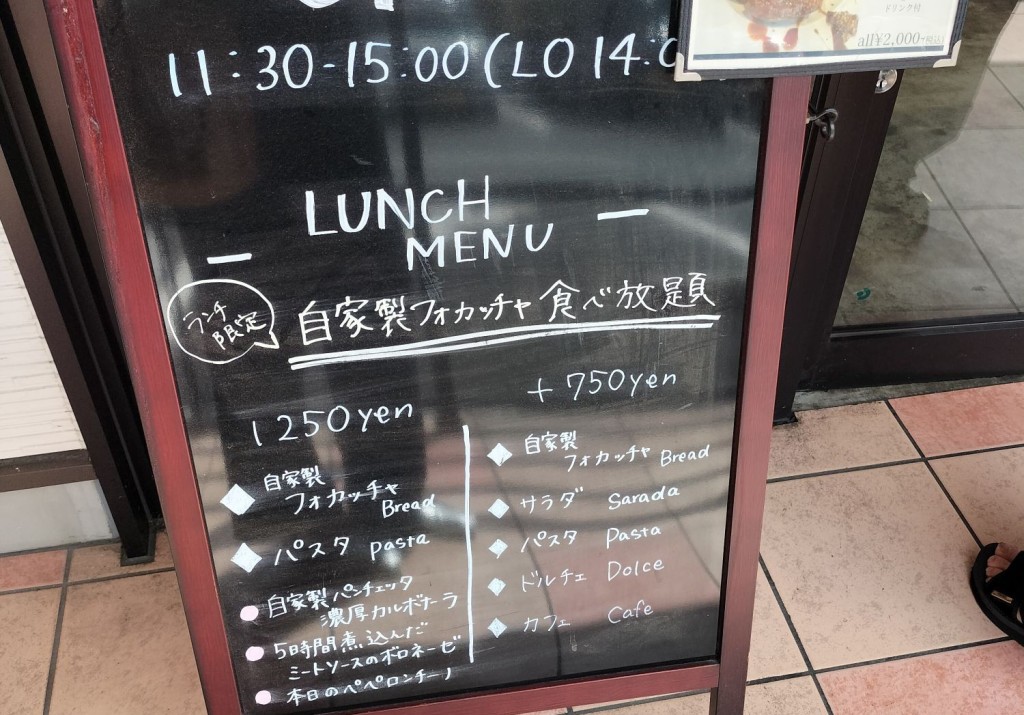 ドリンク付
all¥2,000
11:30-15:00(LO 14:0
LUNCH
MENU
ランチ
限定
自家製フォカッチャ 食べ放題
1250yen
自家製
フォカッチャ
Bread
パスタ pasta
自家製パンチェッタ
濃厚カルボナーラ
5時間煮込んだ
ミートソースのボロネーゼ
本日のペペロンチーノ
+ 750yen
自家製
フォカッチャ Bread
サラダ Sarada
パスタ Pasta
ドルチェ Dolce
カフェ Cafe